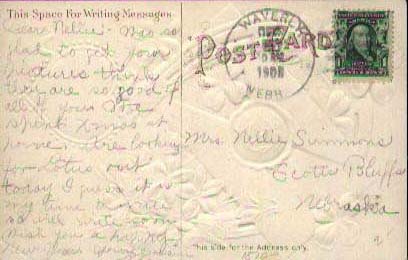 This Space For Writing Messages.
Dear Nellie:- Was so
glad to get your
pictures think
they are so good of
all of you. We
spent Xmas at
home, are looking
for Lotus out
today I guess it is
my time to write
so will write soon
wish you a happy
New Year
WAVERLY
DEC
1908
NEBR
POSTCARD
Mrs. Nellie Simmons
Scotts Bluffs
Nebraska
This side for the Address only.